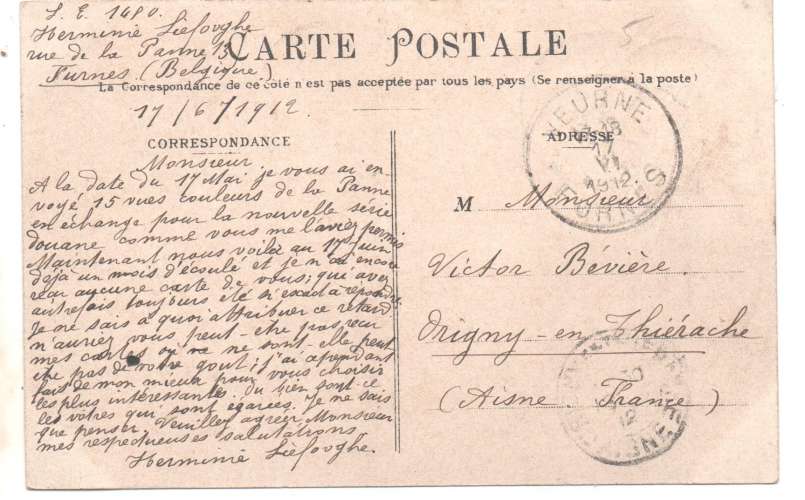 S. E. 1480.
Herminie Liefooghe
rue de la Panne 15
Furnes. (Belgique.)
CARTE POSTALE
La Correspondance de ce côté n'est pas acceptée par tous les pays (Se renseigner à la poste)
17/6/1912
CORRESPONDANCE
Monsieur
A la date du 17 Mai je vous ai en-
voyé 15 vues couleurs de la Panne
en échange pour la nouvelle série
douane comme vous me l'aviez permis
Maintenant nous voilà au 17 juin
déjà un mois d'écoulé et je n'ai encore
reçu aucune carte de vous; qui avez
autrefois toujours été si exact à répondre
Je ne sais à quoi attribuer ce retard
n'auriez vous peut-etre pas reçu
mes cartes ou ne ne sont-elle peut
etre pas de votre gout; j'ai cependant
fais de mon mieux pour vous choisir
les plus intéressantes. Ou bien sont-ce
les vôtres qui sont égarées. Je ne sais
que penser. Veuillez agréer Monsieur
mes respectueuses salutations.
Herminie Liefooghe.
ADRESSE
VEURNE
18
17
VI
1912
FURNES
M Monsieur
Victor Bévière.
Origny-en Thiérache
(Aisne. France)